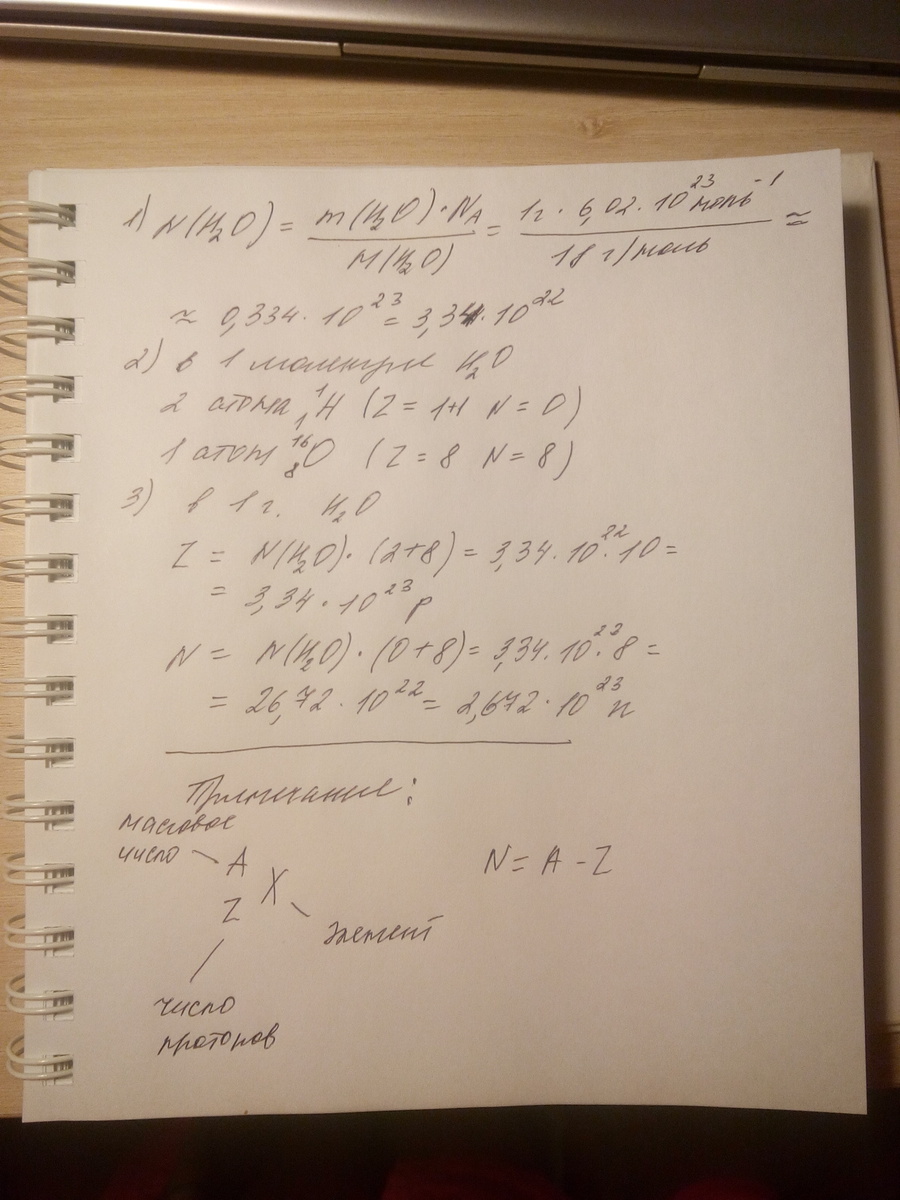 1) N(H₂O) = m(H₂O)·N_A / M(H₂O) = 1г · 6,02 · 10²³ моль⁻¹ / 18 г/моль ≈
≈ 0,334 · 10²³ = 3,34 · 10²²
2) в 1 молекуле H₂O
2 атома ¹₁H (Z = 1+1 N = 0)
1 атом ¹⁶₈O (Z = 8 N = 8)
3) в 1 г. H₂O
Z = N(H₂O)·(2+8) = 3,34 · 10²² · 10 =
= 3,34 · 10²³ p
N = N(H₂O)·(0+8) = 3,34 · 10²³ · 8 =
= 26,72 · 10²² = 2,672 · 10²³ n
Примечание:
массовое
число A
Z X
N = A - Z
элемент
число
протонов